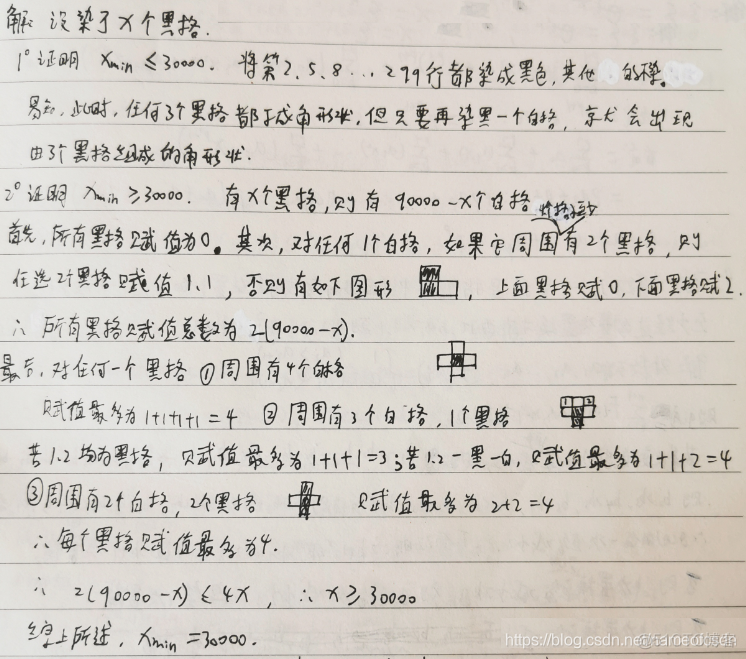 解: 设染了x个黑格.
1° 证明 xmin ≤30000. 将第2、5、8 … 299行都染成黑色,其他 的不染。
易知,此时,任何3个黑格都不成角形状,但只要再染黑一个白格,就会出现
由3个黑格组成的角形状.
2° 证明 xmin ≥30000. 有x个黑格,则有 90000-x个白格
首先,所有黑格赋值为0。其次,对任何1个白格,如果它周围有2个黑格,则
任选2个黑格赋值1、1,否则有如下图形 ,上面黑格赋0,下面黑格赋2.
∴ 所有黑格赋值总数为 2(90000-x).
最后,对任何一个黑格 ①周围有4个白格
赋值最多为1+1+1+1=4 ②周围有3个白格,1个黑格
1 2
若1、2均为黑格,赋值最多为1+1+1=3;若1、2一黑一白,赋值最多为1+1+2=4
③周围有2个白格,2个黑格 赋值最多为2+2=4
∴ 每个黑格赋值最多为4.
∴ 2(90000-x) ≤ 4x, ∴ x≥30000
综上所述, xmin=30000.